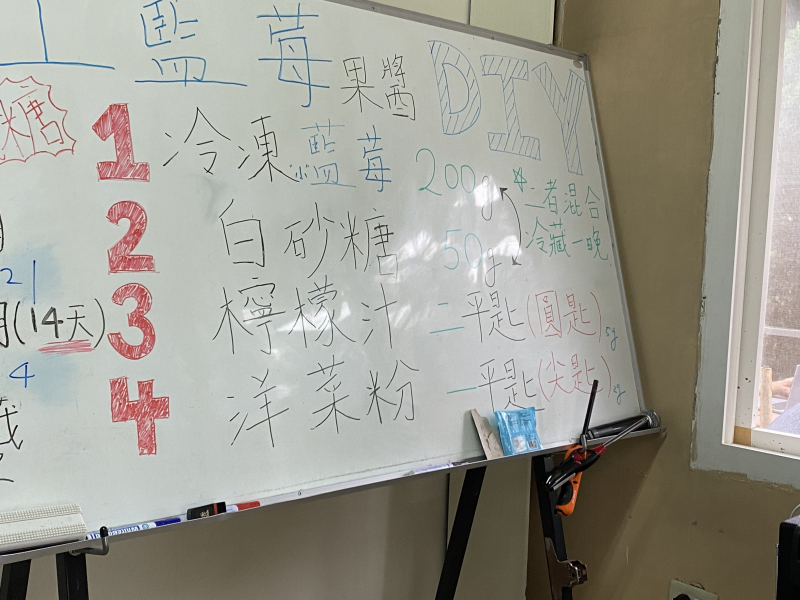 藍莓果醬 DIY
糖
1 冷凍藍莓 200g
*二者混合
冷藏一晚
2 白砂糖 50g
21
3 檸檬汁 二平匙(圓匙)5g
(14天)
4
4 洋菜粉 一平匙(尖匙)